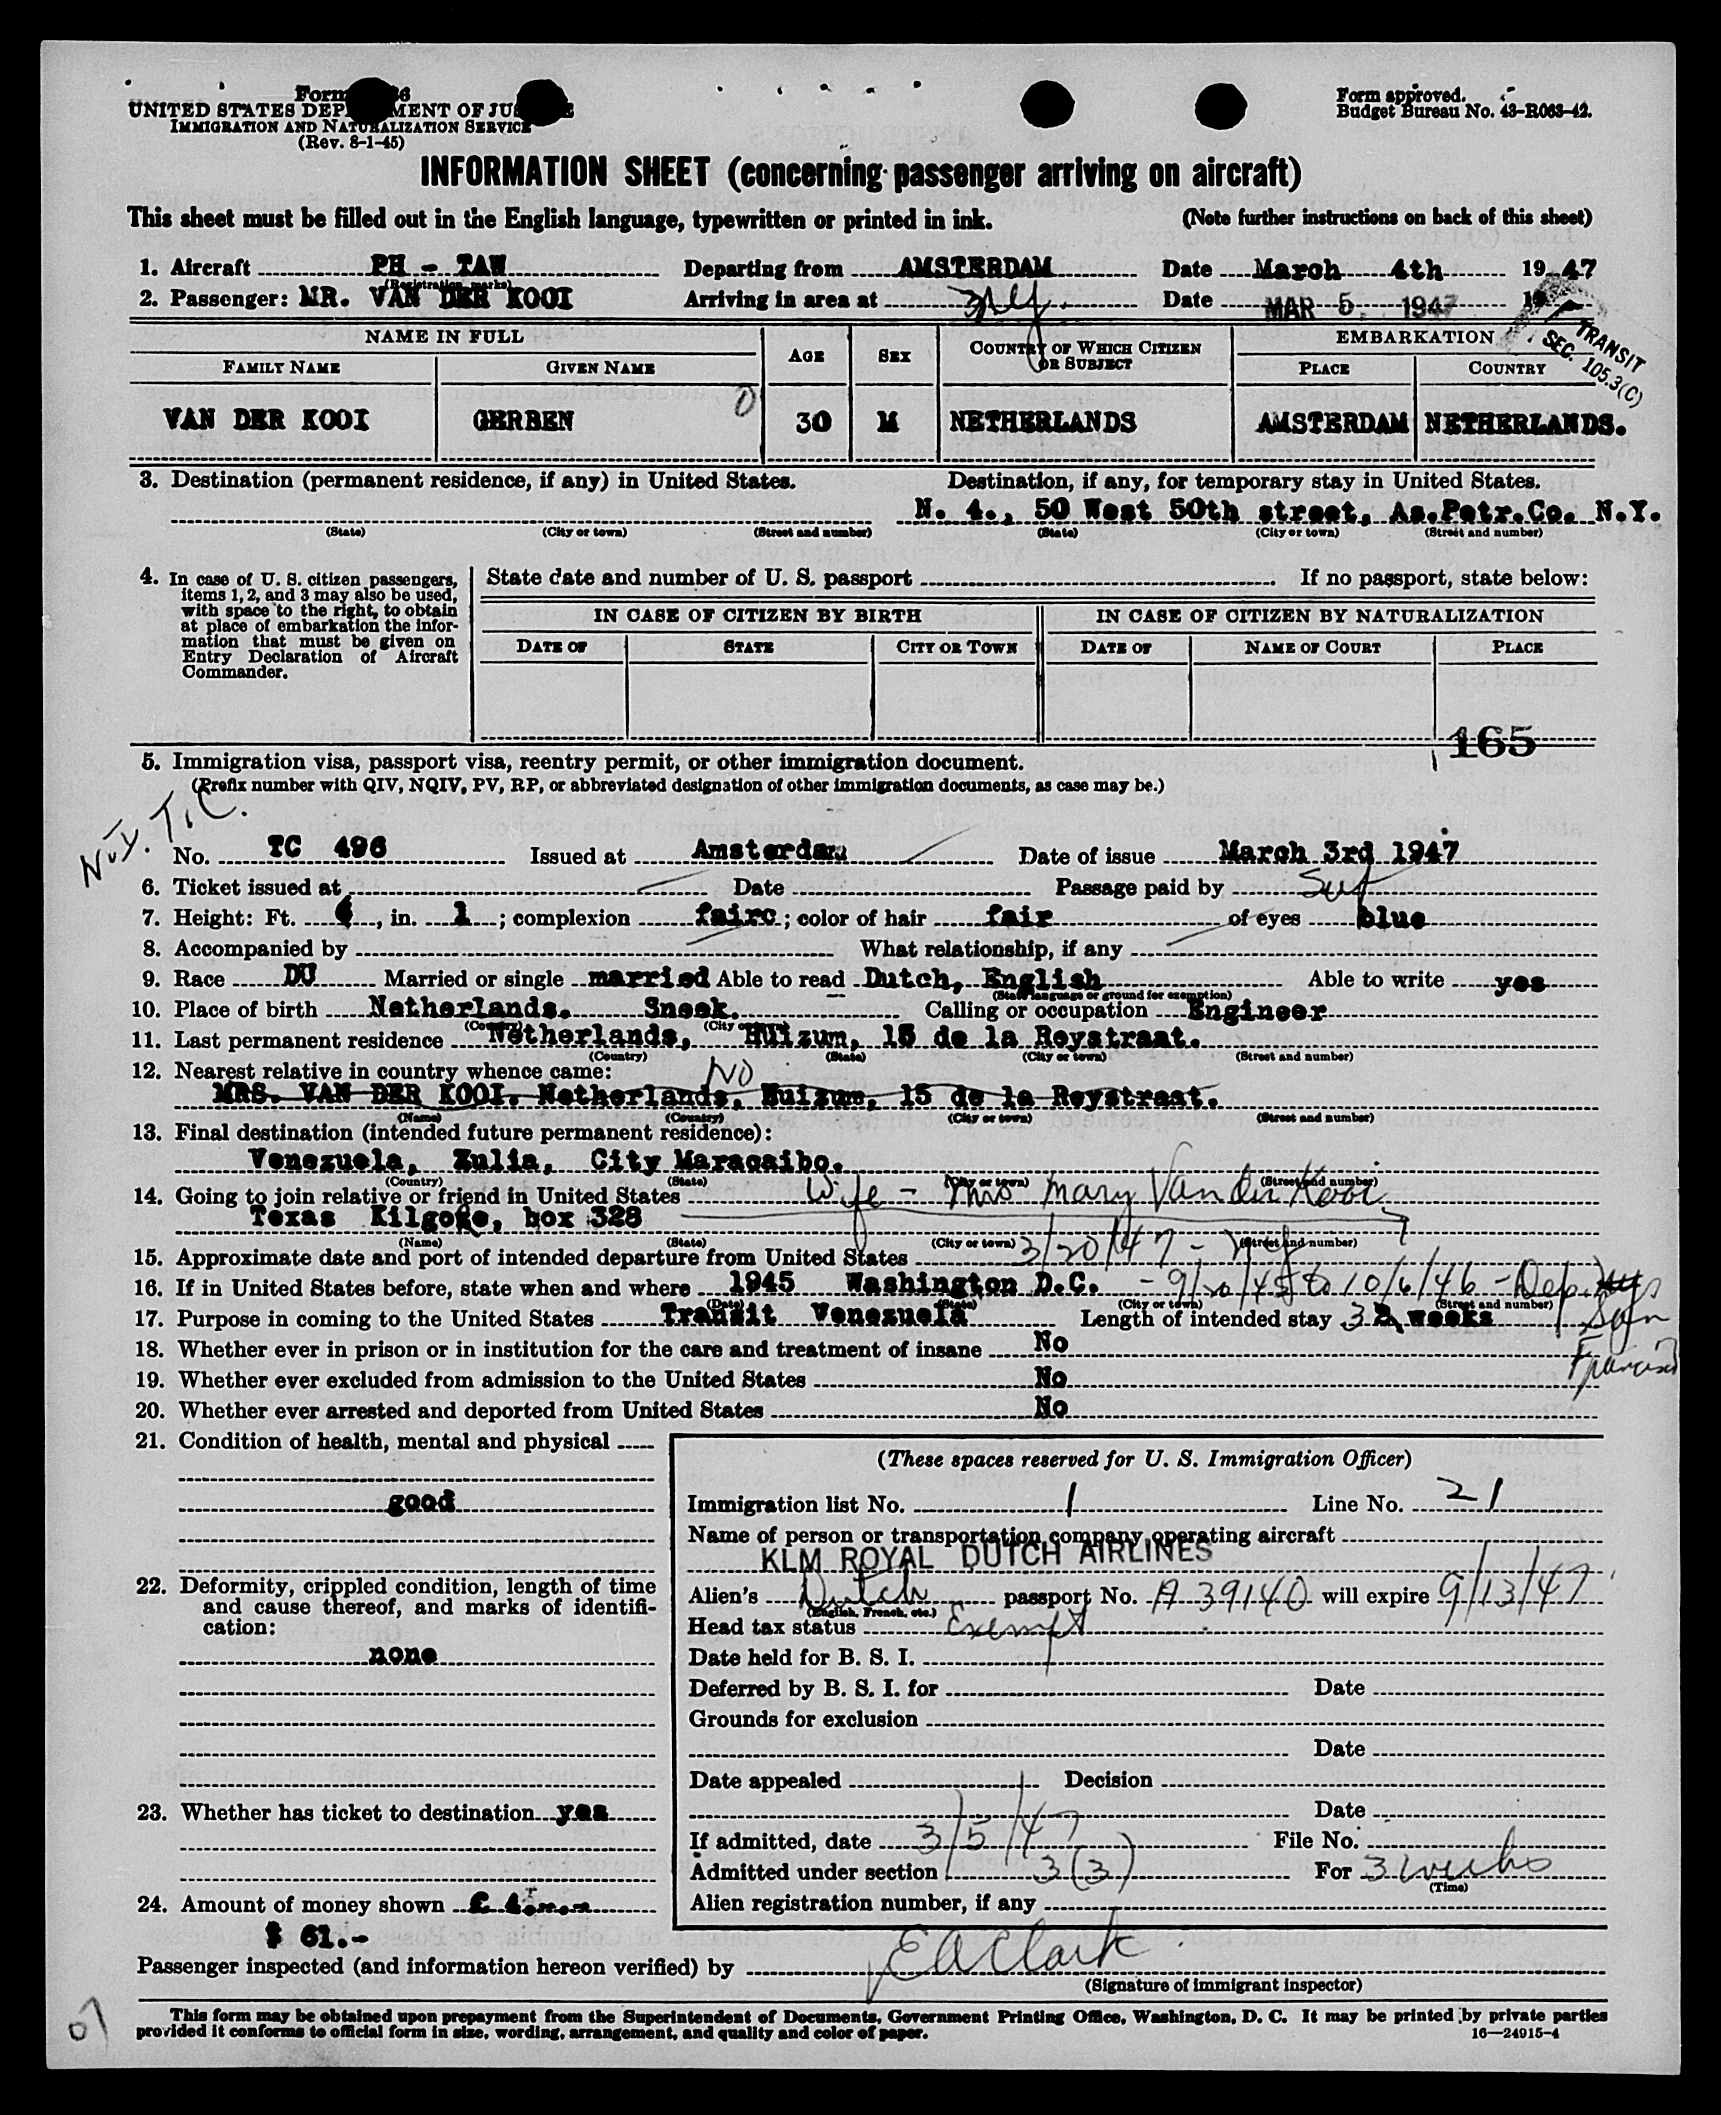 UNITED STATES DEP MENT OF JUS
IMMIGRATION AND NATURALIZATION SERVICE
(Rev. 8-1-45)
Form approved.
Budget Bureau No. 43-R063-42.
INFORMATION SHEET (concerning passenger arriving on aircraft)
This sheet must be filled out in the English language, typewritten or printed in ink. (Note further instructions on back of this sheet)
1. Aircraft PH - TAW Departing from AMSTERDAM Date March 4th 1947
(Registration marks)
2. Passenger: MR. VAN DER KOOI Arriving in area at Date MAR 5 1947 19
TRANSIT
SEC. 105.3(C)
NAME IN FULL AGE SEX COUNTRY OF WHICH CITIZEN OR SUBJECT EMBARKATION
FAMILY NAME GIVEN NAME PLACE COUNTRY
VAN DER KOOI GERBEN 0 30 M NETHERLANDS AMSTERDAM NETHERLANDS.
3. Destination (permanent residence, if any) in United States. Destination, if any, for temporary stay in United States.
N. 4., 50 West 50th street, As.Petr.Co. N.Y.
(State) (City or town) (Street and number) (State) (City or town) (Street and number)
4. In case of U. S. citizen passengers, items 1, 2, and 3 may also be used, with space to the right, to obtain at place of embarkation the information that must be given on Entry Declaration of Aircraft Commander.
State date and number of U. S. passport If no passport, state below:
IN CASE OF CITIZEN BY BIRTH IN CASE OF CITIZEN BY NATURALIZATION
DATE OF STATE CITY OR TOWN DATE OF NAME OF COURT PLACE
165
5. Immigration visa, passport visa, reentry permit, or other immigration document.
(Prefix number with QIV, NQIV, PV, RP, or abbreviated designation of other immigration documents, as case may be.)
N.I. T.C.
No. TC 496 Issued at Amsterdam Date of issue March 3rd 1947
6. Ticket issued at Date Passage paid by Self
7. Height: Ft. 6, in. 1; complexion fairc; color of hair fair of eyes blue
8. Accompanied by What relationship, if any
9. Race DU Married or single married Able to read Dutch, English Able to write yes
(State language or ground for exemption)
10. Place of birth Netherlands. Sneek. Calling or occupation Engineer
(Country) (City or town)
11. Last permanent residence Netherlands, Huizum, 15 de la Reystraat.
(Country) (State) (City or town) (Street and number)
12. Nearest relative in country whence came: NO
MRS. VAN DER KOOI, Netherlands, Huizum, 15 de la Reystraat.
(Name) (Country) (City or town) (Street and number)
13. Final destination (intended future permanent residence):
Venezuela, Zulia, City Maracaibo.
(Country) (State) (City or town) (Street and number)
14. Going to join relative or friend in United States Wife - Mrs Mary Van der Kooi
Texas Kilgore, box 328
(Name) (State) (City or town) (Street and number)
15. Approximate date and port of intended departure from United States 3/20/47 - NY
16. If in United States before, state when and where 1945 Washington D.C. - 9/20/45 to 10/6/46 - Dep.
San Francisco
(Date) (State) (City or town) (Street and number)
17. Purpose in coming to the United States Transit Venezuela Length of intended stay 3 weeks
18. Whether ever in prison or in institution for the care and treatment of insane No
19. Whether ever excluded from admission to the United States No
20. Whether ever arrested and deported from United States No
21. Condition of health, mental and physical
good
22. Deformity, crippled condition, length of time and cause thereof, and marks of identification:
none
23. Whether has ticket to destination yes
24. Amount of money shown £ 4.-.-
$ 61.-
(These spaces reserved for U. S. Immigration Officer)
Immigration list No. 1 Line No. 21
Name of person or transportation company operating aircraft
KLM ROYAL DUTCH AIRLINES
Alien's Dutch passport No. A 39140 will expire 9/13/47
(English, French, etc.)
Head tax status Exempt
Date held for B. S. I.
Deferred by B. S. I. for Date
Grounds for exclusion
Date
Date appealed Decision
Date
If admitted, date 3/5/47 File No.
Admitted under section 3(3) For 3 weeks
(Time)
Alien registration number, if any
Passenger inspected (and information hereon verified) by EAClark
(Signature of immigrant inspector)
This form may be obtained upon prepayment from the Superintendent of Documents, Government Printing Office, Washington, D. C. It may be printed by private parties
provided it conforms to official form in size, wording, arrangement, and quality and color of paper. 16—24915-4